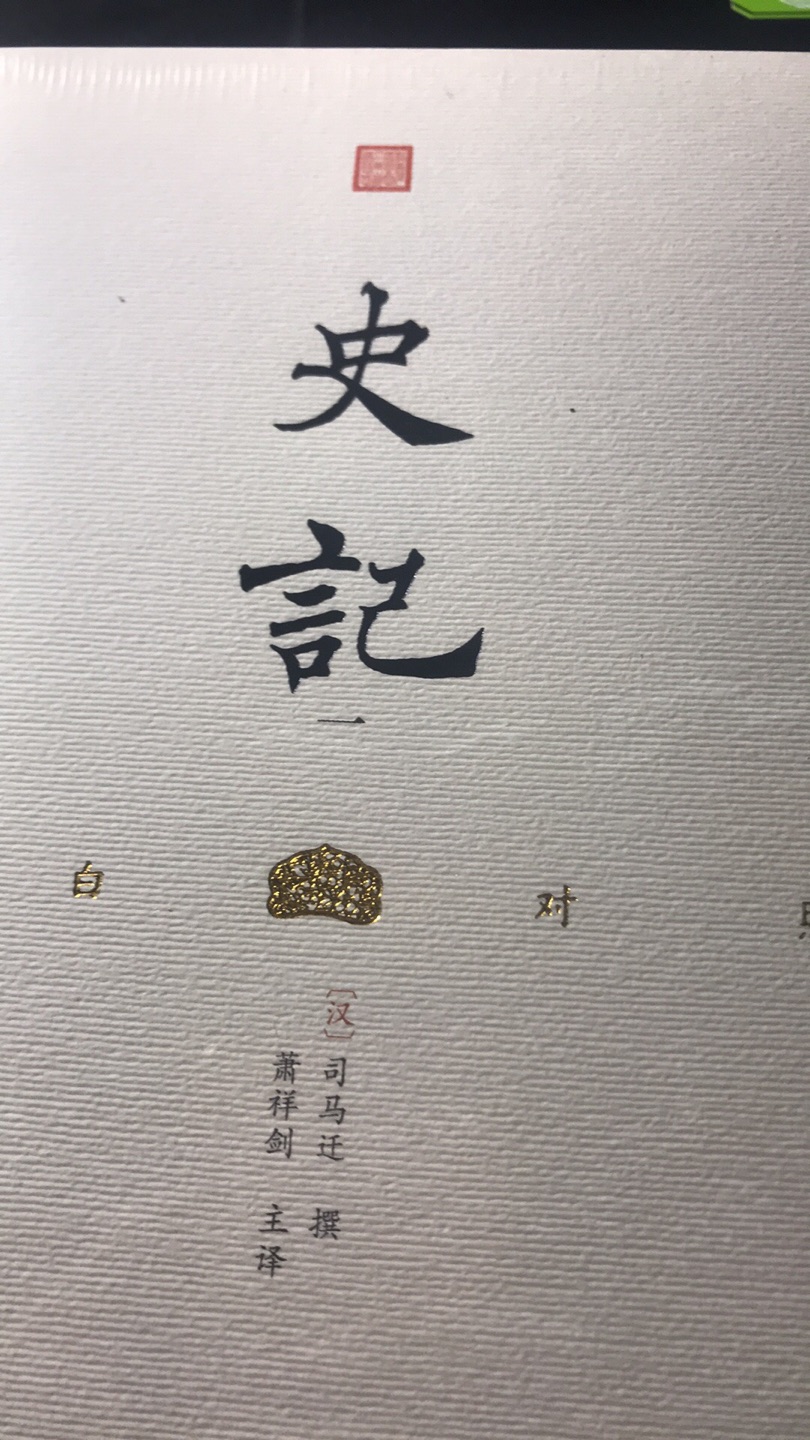 史記
一
白 对
［汉］司马迁 撰
萧祥剑 主译